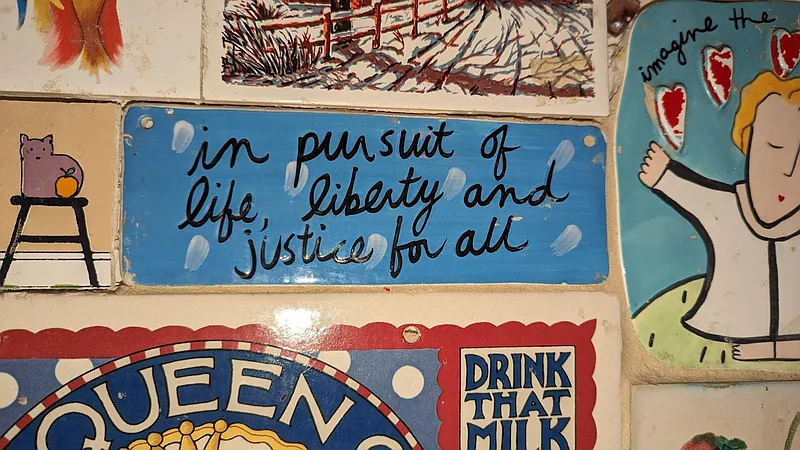 imagine the
in pursuit of
life, liberty and
justice for all
QUEEN
DRINK
THAT
MILK